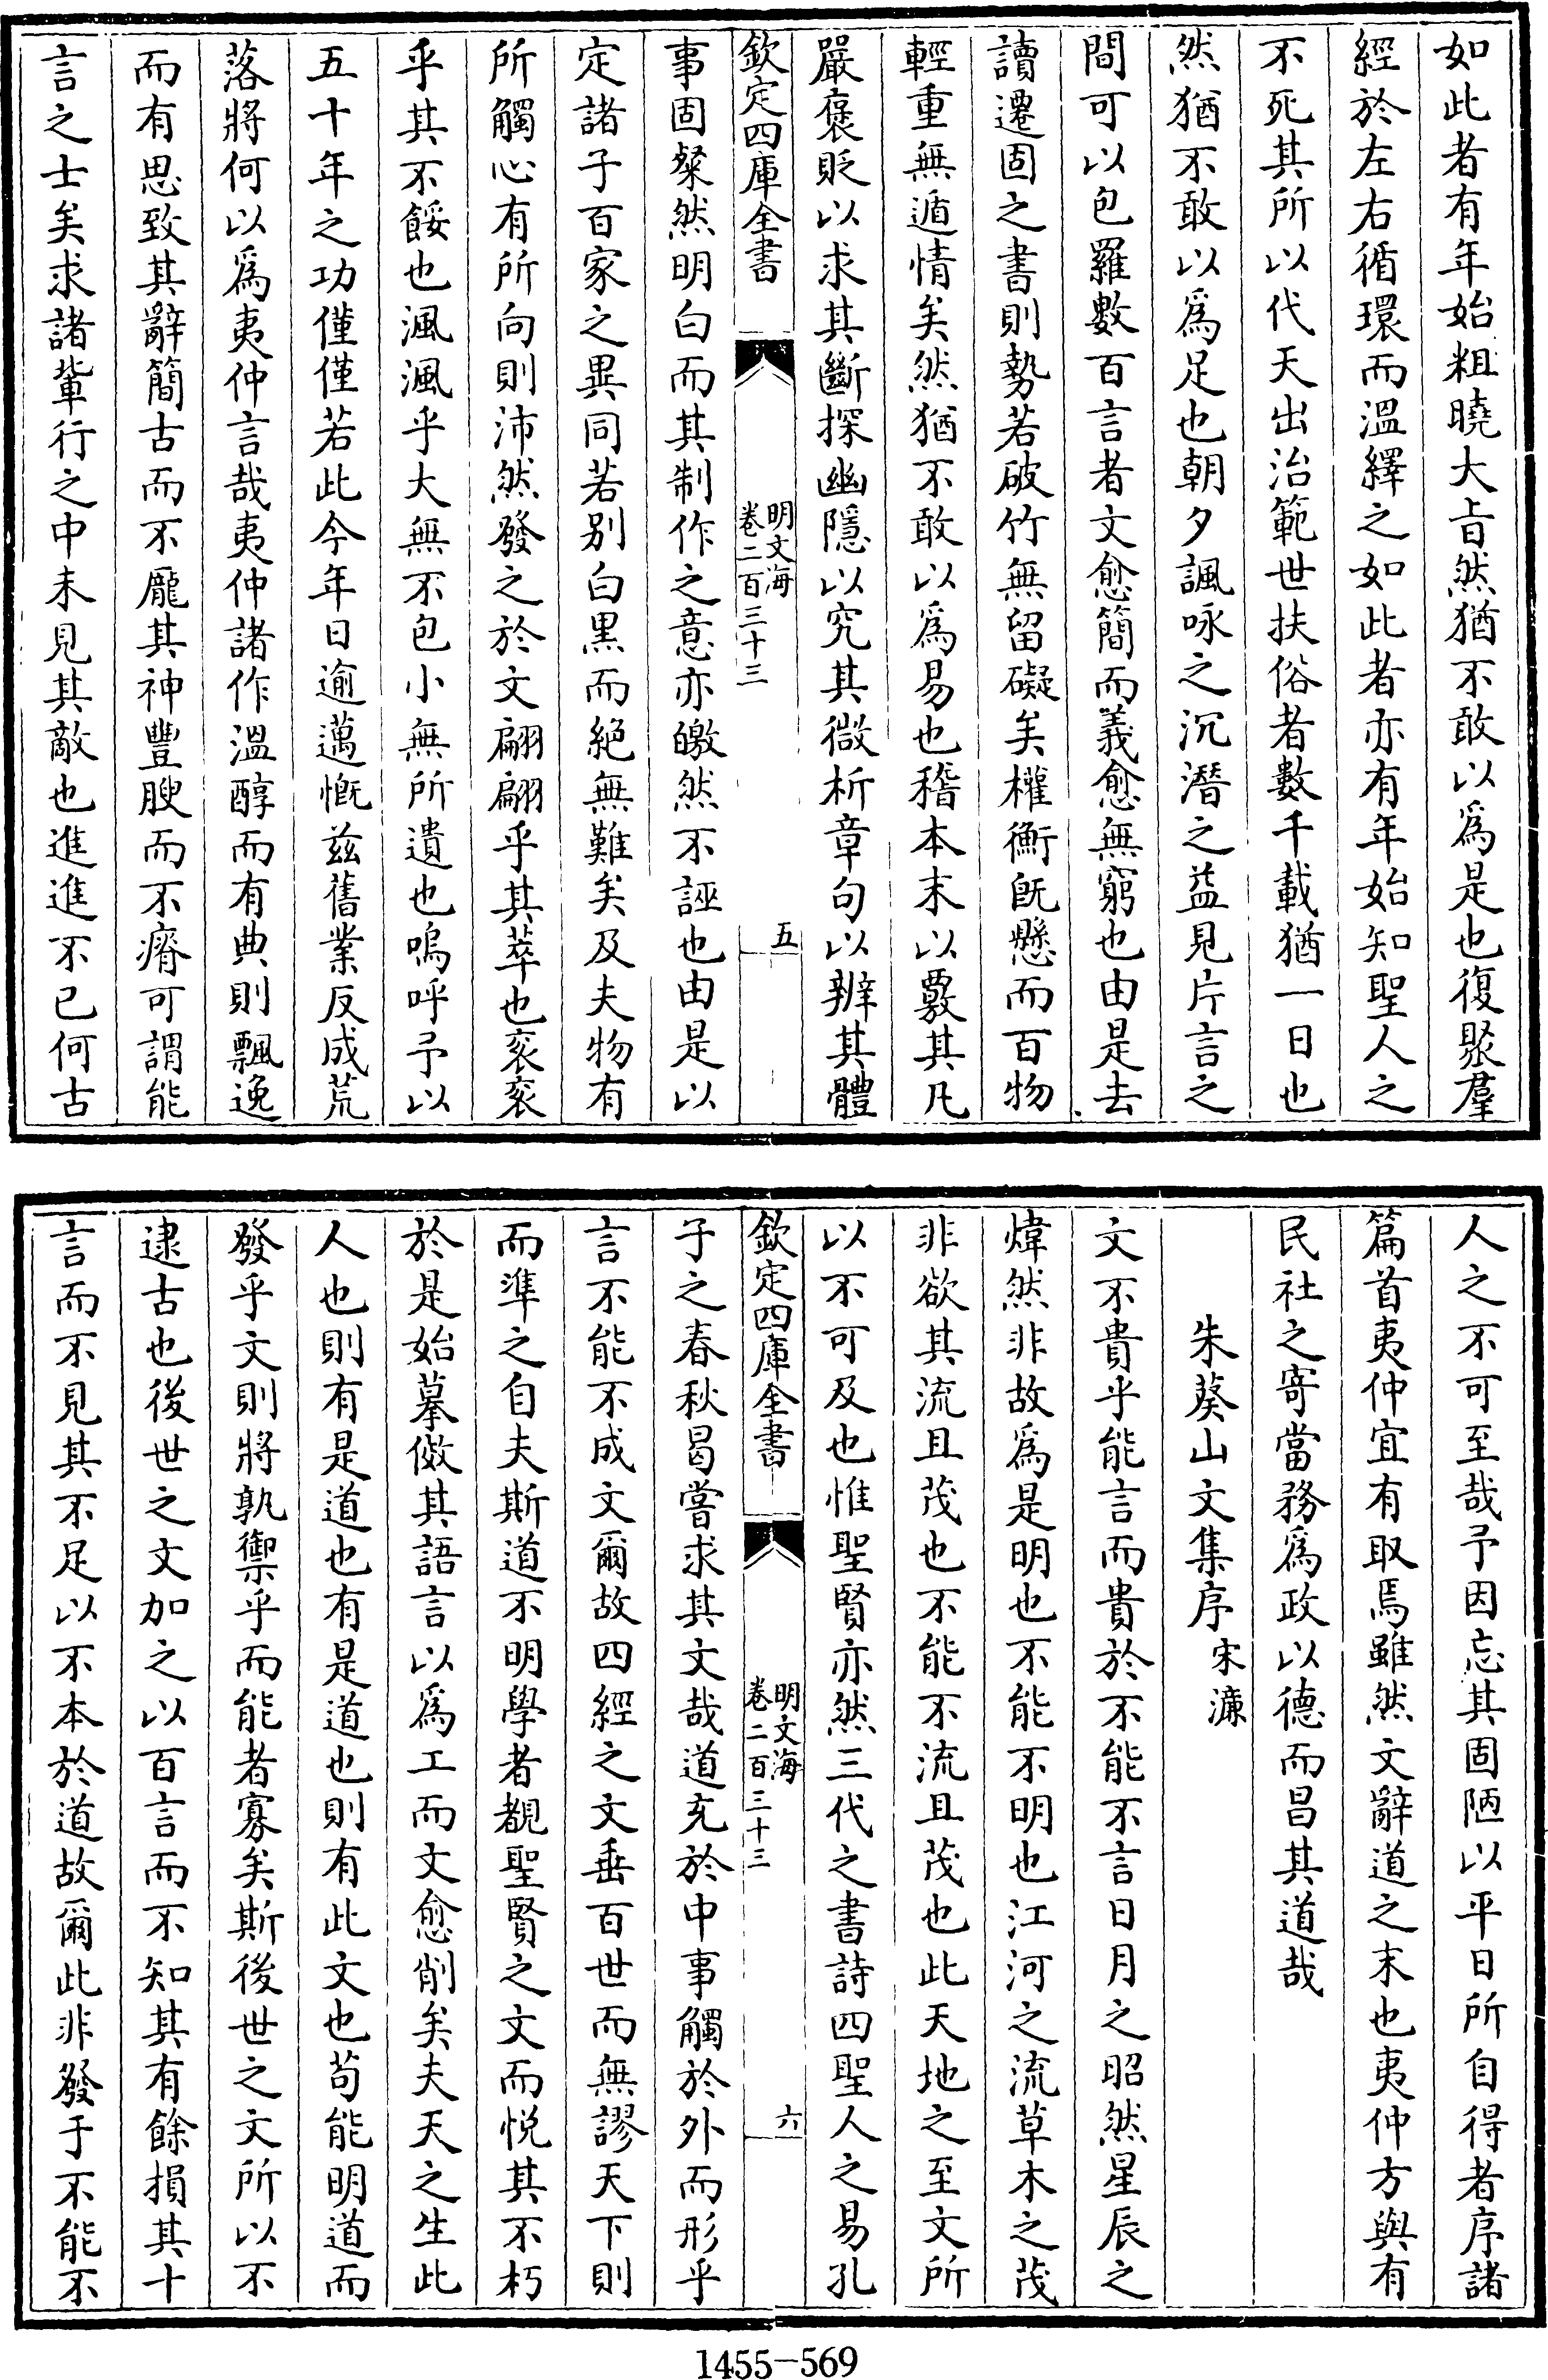 如此者有年始粗曉大㫖然猶不敢以爲是也復聚羣
經於左右循環而溫繹之如此者亦有年始知聖人之
不死其所以代天出治範世扶俗者數千載猶一日也
然猶不敢以爲足也朝夕諷咏之沉潛之益見片言之
間可以包羅數百言者文愈簡而義愈無窮也由是去
讀遷固之書則勢若破竹無留礙矣權衡既懸而百物
輕重無遁情矣然猶不敢以爲易也稽本末以覈其凡
嚴褒貶以求其斷探幽隱以究其微析章句以辨其體
欽定四庫全書 明文海 卷二百三十三 五
事固粲然明白而其制作之意亦皦然不誣也由是以
定諸子百家之異同若别白黑而絶無難矣及夫物有
所觸心有所向則沛然發之於文翩翩乎其萃也衮衮
乎其不餒也渢渢乎大無不包小無所遺也嗚呼予以
五十年之功僅僅若此今年日逾邁慨兹舊業反成荒
落將何以爲夷仲言哉夷仲諸作溫醇而有典則飄逸
而有思致其辭簡古而不龐其神豐腴而不瘠可謂能
言之士矣求諸輩行之中未見其敵也進進不已何古
人之不可至哉予因忘其固陋以平日所自得者序諸
篇首夷仲宜有取焉雖然文辭道之末也夷仲方與有
民社之寄當務爲政以德而昌其道哉
朱葵山文集序 宋濂
文不貴乎能言而貴於不能不言日月之昭然星辰之
煒然非故爲是明也不能不明也江河之流草木之茂
非欲其流且茂也不能不流且茂也此天地之至文所
以不可及也惟聖賢亦然三代之書詩四聖人之易孔
欽定四庫全書 明文海 卷二百三十三 六
子之春秋曷嘗求其文哉道充於中事觸於外而形乎
言不能不成文爾故四經之文垂百世而無謬天下則
而準之自夫斯道不明學者覩聖賢之文而悦其不朽
於是始摹倣其語言以爲工而文愈削矣夫天之生此
人也則有是道也有是道也則有此文也苟能明道而
發乎文則將孰禦乎而能者寡矣斯後世之文所以不
逮古也後世之文加之以百言而不知其有餘損其十
言而不見其不足以不本於道故爾此非發于不能不
1455-569